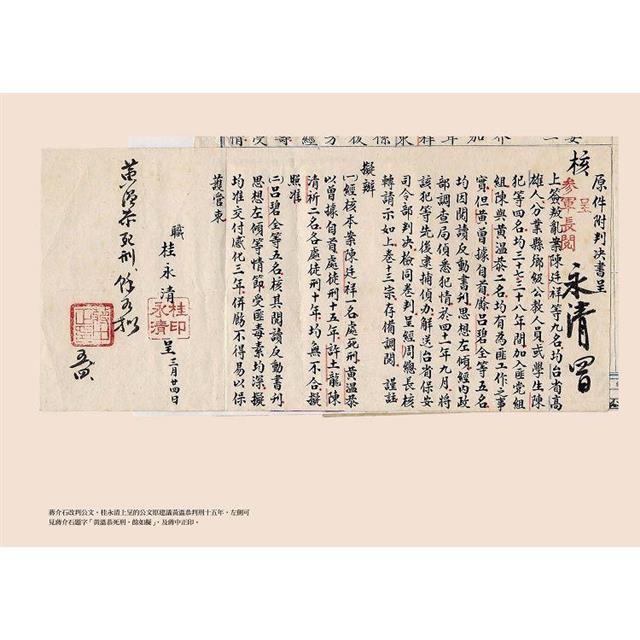 原件附判決書呈
核
呈
參軍長閱
永清
上簽叛亂案陳廷祥等九名均台省高
雄人(分業縣鄉級公教人員或學生陳
犯等四名均三七三八年間加入匪黨組
組陳與黃溫恭二名均有為匪工作之事
實但黃曾據自首餘呂碧全等五名
均因閱讀反動書刊思想左傾經內政
部調查局偵悉犯情於四十一年九月將
該犯等先後逮捕偵辦解送台省保安
司令部判決檢同卷判呈經周總長核
轉請示如上卷十三宗存備調閱 謹註
擬辦
(一)經核本案陳廷祥一名處死刑黃溫恭
以曾據自首處徒刑十五年許土龍陳
清祈二名各處徒刑十年均無不合擬
照准
(二)呂碧全等五名核其閱讀反動書刊
思想左傾等情節受匪毒素均深擬
均准交付感化三年併飭不得易以保
護管束
職 桂永清 呈 三月廿四日
桂永清印
黃溫恭死刑,餘如擬
蔣中正印
蔣介石改判公文。桂永清上呈的公文原建議黃溫恭判刑十五年。左側可
見蔣介石題字「黃溫恭死刑,餘如擬」,及蔣中正印。